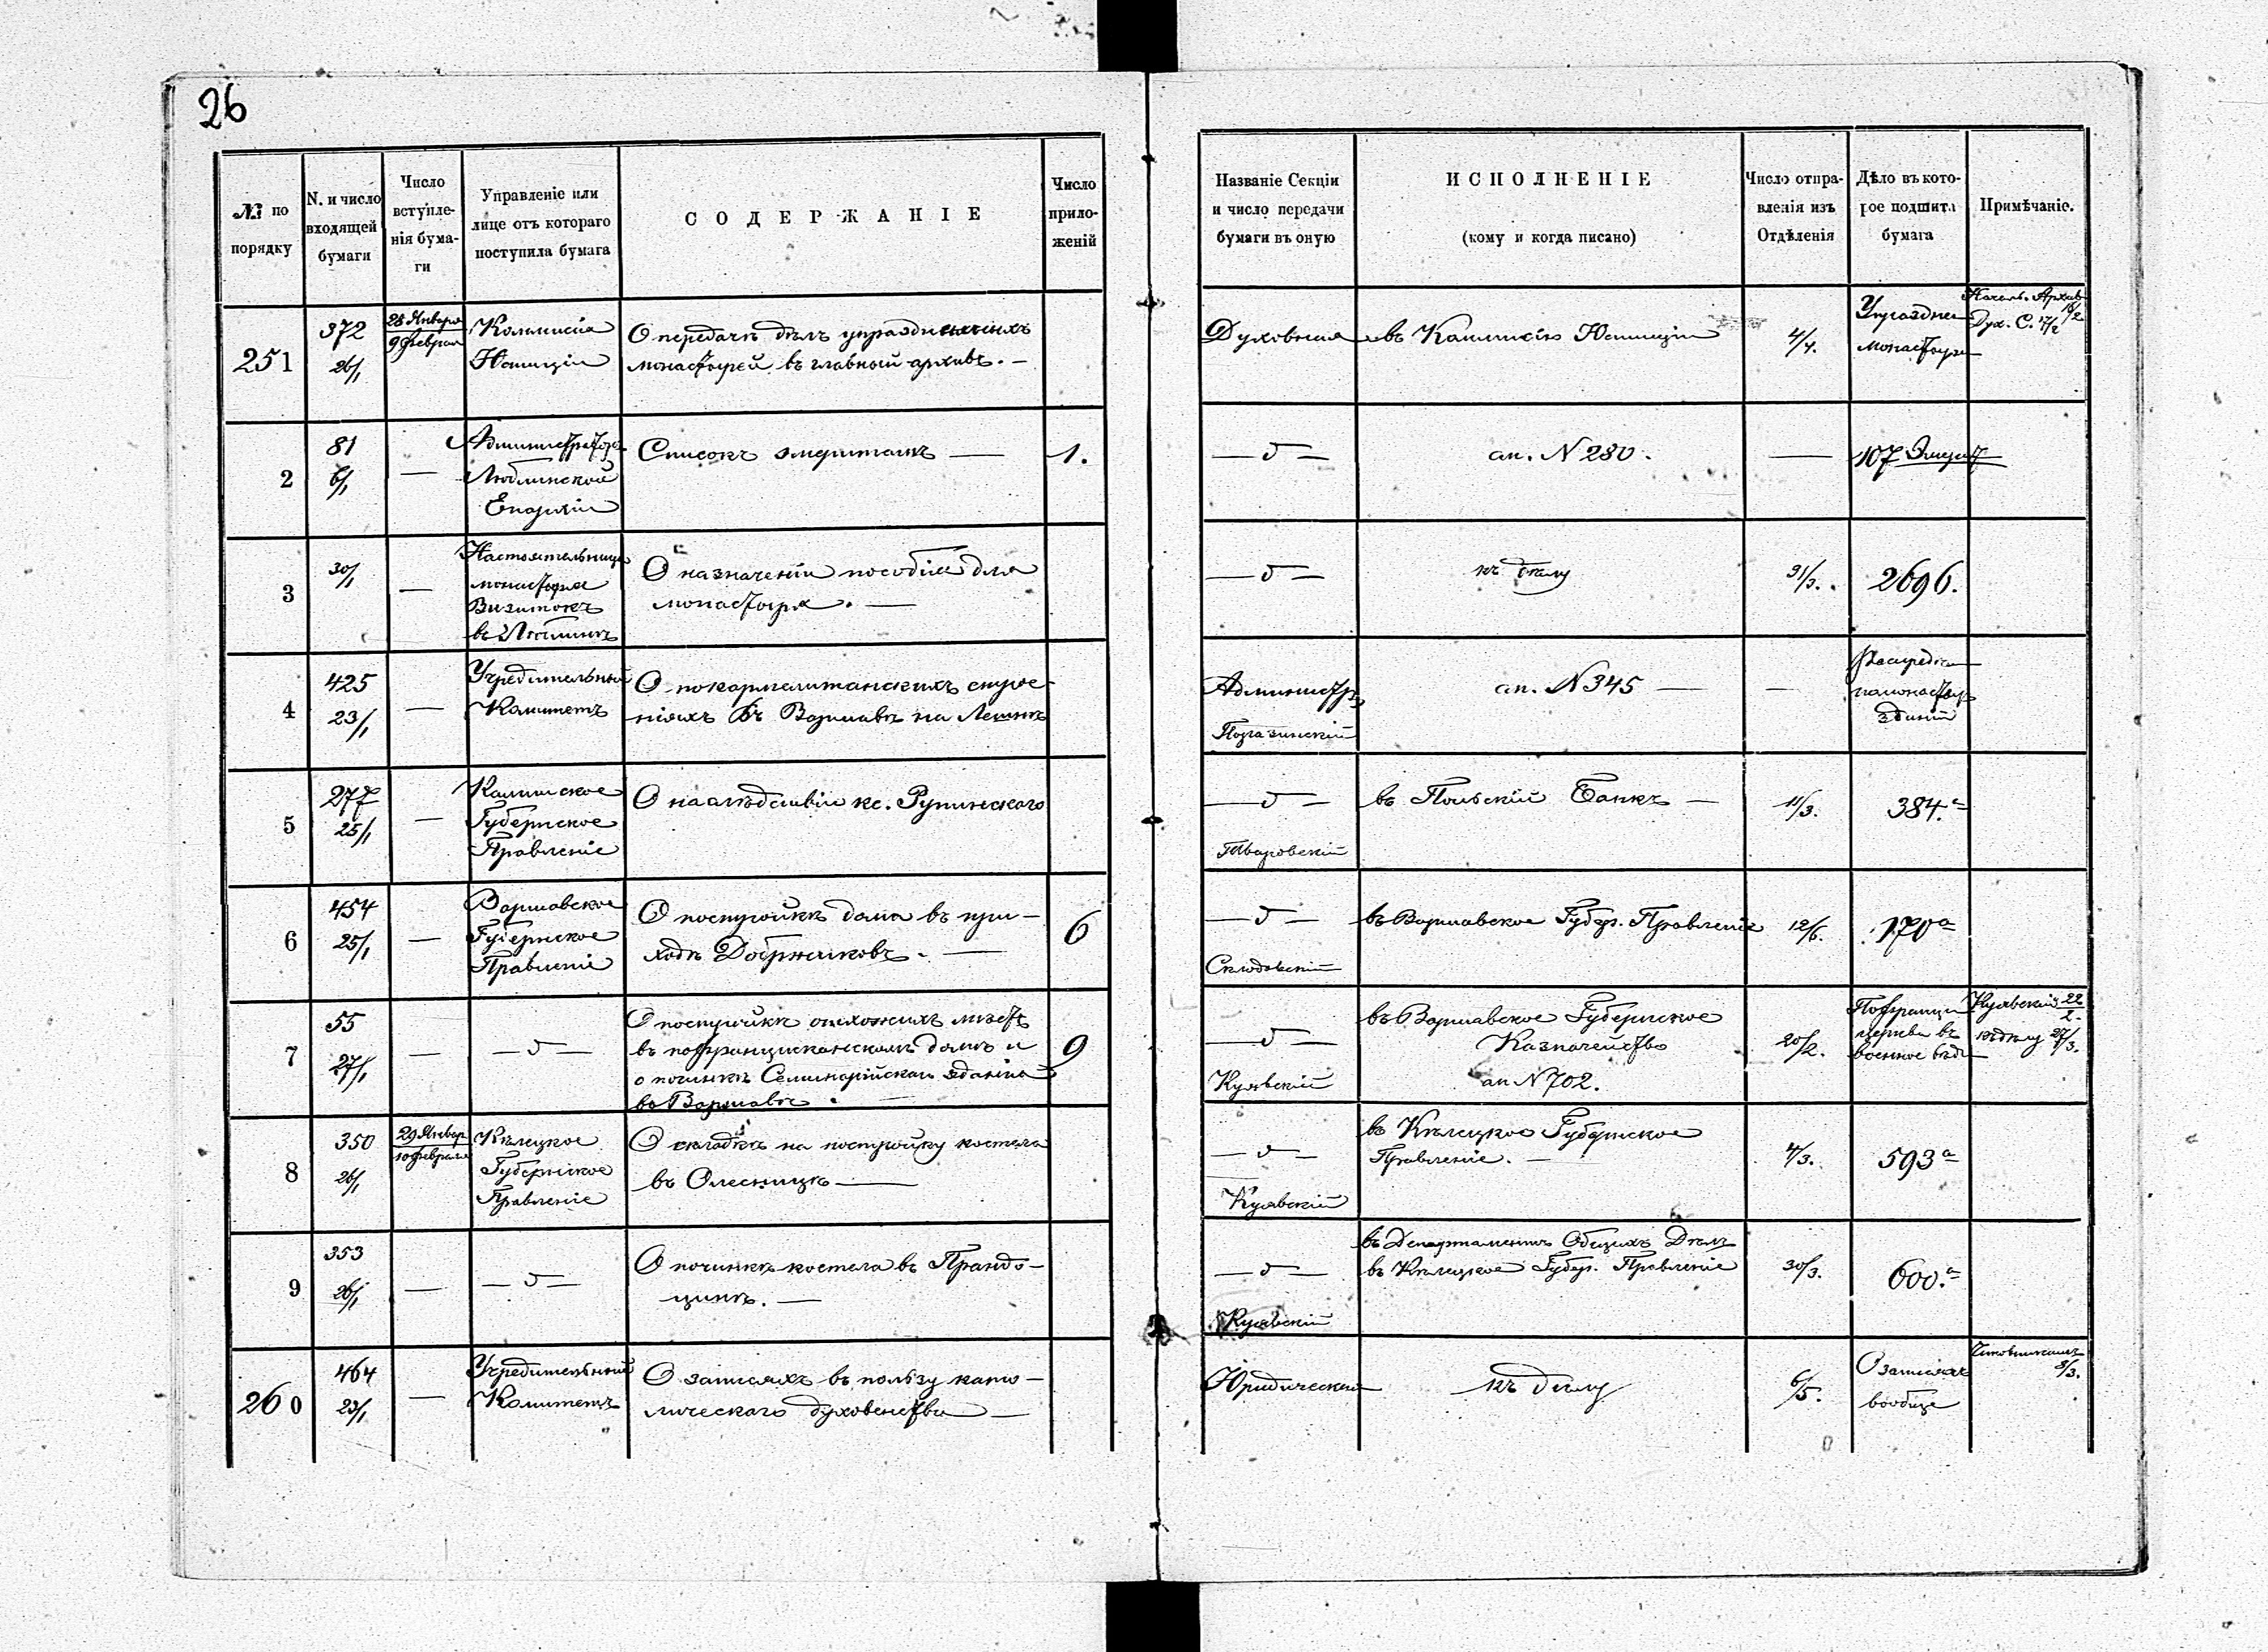 26
№ по порядку
N. и число входящей бумаги
Число вступле-нія бума-ги
Управленіе или лице отъ котораго поступила бумага
СОДЕРЖАНІЕ
Число прило-женій
Названіе Секціи и число передачи бумаги въ оную
ИСПОЛНЕНІЕ
(кому и когда писано)
Число отпра-вленія изъ Отдѣленія
Дѣло въ кото-рое подшита бумага
Примѣчаніе.
251
372
26/1
28 Января
9 февраля
Коммисія
Юстиціи
О передачѣ дѣлъ упраздненныхъ
монастырей въ главный архивъ. —
Духовная
въ Коммисію Юстиціи
4/4.
Упраздне
монастыри
Дух. С. 17/2
2
81
6/1
—
Администраторъ
Люблинской
Епархіи
Списокъ эмеритамъ —
1.
ап. N 280.
—
107
3
30/1
—
Настоятельница
монастыря
Визитокъ
въ Люблинѣ
О назначеніи пособія для
монастыря. —
къ дѣлу
31/3.
2696.
4
425
23/1
—
Учредительный
Комитетъ
О покармелитанскихъ строе-
ніяхъ въ Варшавѣ на Лешнѣ
Администр.
ап. N 345 —
—
зданій
5
277
25/1
—
Калишское
Губернское
Правленіе
О наслѣдствіи кс. Рупинскаго
въ Польскій Банкъ —
11/3.
384.а
6
454
25/1
—
Варшавское
Губернское
Правленіе
О постройкѣ дома въ при-
ходѣ Добржиковъ. —
6
въ Варшавское Губер. Правленіе
12/6.
170а
7
55
27/1
—
О постройкѣ отхожихъ мѣстъ
въ пофранцисканскомъ домѣ и
о починкѣ Семинарійскаго зданія
въ Варшавѣ.
9
Куявскій
въ Варшавское Губернское
Казначейство
ап N 702.
20/2.
Пофранци
церкви въ
военное вѣд
Куявскій 22/2.
къ дѣлу 27/3.
8
350
26/1
29 Январ
10 февраля
Кѣлецкое
Губернское
Правленіе
О складкѣ на постройку костела
въ Олесницѣ —
Куявскій
въ Кѣлецкое Губернское
Правленіе. —
4/3.
593а
9
353
26/1
—
О починкѣ костела въ Прандо-
цинѣ. —
Куявскій
въ Департаментъ Общихъ Дѣлъ
въ Кѣлецкое Губер. Правленіе
30/3.
600.а
260
464
23/1
—
Учредительный
Комитетъ
О записяхъ въ пользу като-
лическаго духовенства —
Юридическая
къ дѣлу
6/5.
О записяхъ
вообще
3/3.